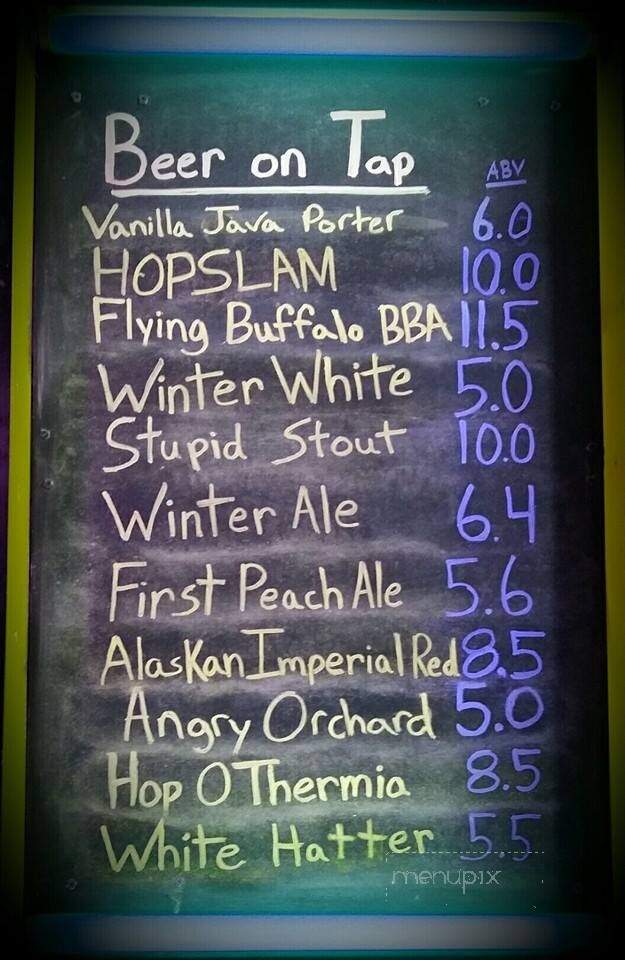 Beer on Tap
ABV
Vanilla Java Porter 6.0
HOPSLAM 10.0
Flying Buffalo BBA 11.5
Winter White 5.0
Stupid Stout 10.0
Winter Ale 6.4
First Peach Ale 5.6
Alaskan Imperial Red 8.5
Angry Orchard 5.0
Hop O Thermia 8.5
White Hatter 5.5
menupix